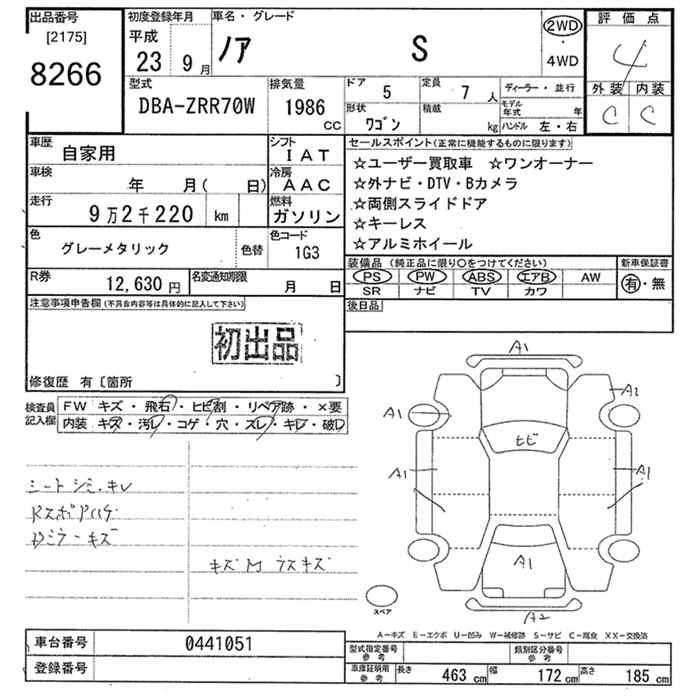 出品番号
[2175]
8266
初度登録年月
平成
23 9月
車名・グレード
ノア S
2WD
・
4WD
評価点
4
外装 内装
C C
型式
DBA-ZRR70W
排気量
1986
CC
ドア 5
定員 7 人
ディーラー・並行
形状 ワゴン
積載 kg
モデル年式 年
ハンドル 左・右
車歴
自家用
シフト
IAT
車検
年 月( 日)
冷房
AAC
走行
9万2千220 km
燃料
ガソリン
色
グレーメタリック
色替
色コード
1G3
R券
12,630 円
名変通知期限
月 日
セールスポイント(正常に機能するものに限ります)
☆ユーザー買取車 ☆ワンオーナー
☆外ナビ・DTV・Bカメラ
☆両側スライドドア
☆キーレス
☆アルミホイール
装備品 (純正品に限り○をつけてください)
PS PW ABS エアB AW
SR ナビ TV カワ
新車保証書
有・無
後日品
注意事項申告欄(不具合内容等は具体的に記入して下さい)
初出品
修復歴 有〔箇所 〕
検査員記入欄
FW キズ・飛石・ヒビ割・リペア跡・×要
内装 キズ・汚レ・コゲ・穴・スレ・キレ・破レ
シートシミ.キレ
キズM ラスキズ
A1
A1
A1
ヒビ
A1
A1
A1
A2
スペア
A-キズ E-エクボ U-凹み W-補修跡 S-サビ C-腐食 XX-交換済
車台番号 0441051
登録番号
型式指定番号 参考
類別区分番号 参考
車庫証明用 参考
長さ 463 cm 幅 172 cm 高さ 185 cm